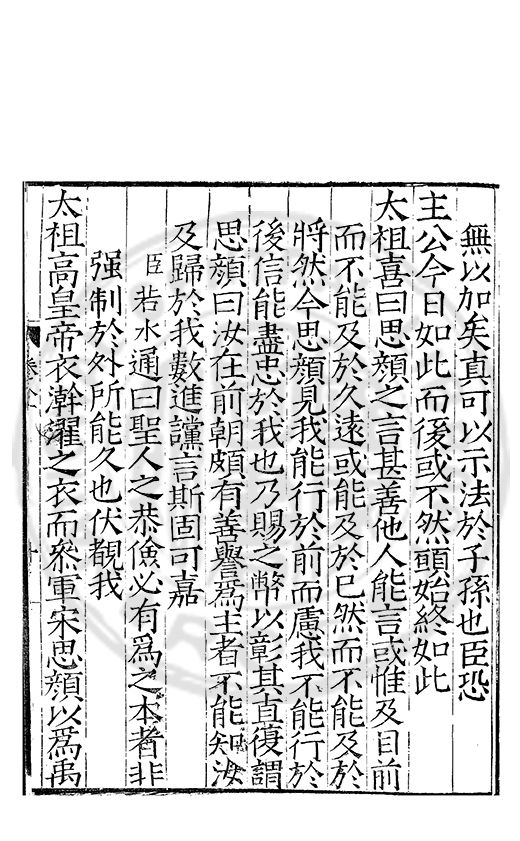 無以加矣真可以示法於子孫也臣恐
主公今日如此而後或不然願始終如此
太祖喜曰思顔之言甚善他人能言或惟及目前
而不能及於久遠或能及於已然而不能及於
將然今思顔見我能行於前而慮我不能行於
後信能盡忠於我也乃賜之幣以彰其直復謂
思顔曰汝在前朝頗有善譽爲主者不能知汝
及歸於我數進讜言斯固可嘉
臣若水通曰聖人之恭儉必有爲之本者非
强制於外所能久也伏覩我
太祖高皇帝衣澣濯之衣而叅軍宋思顔以爲禹